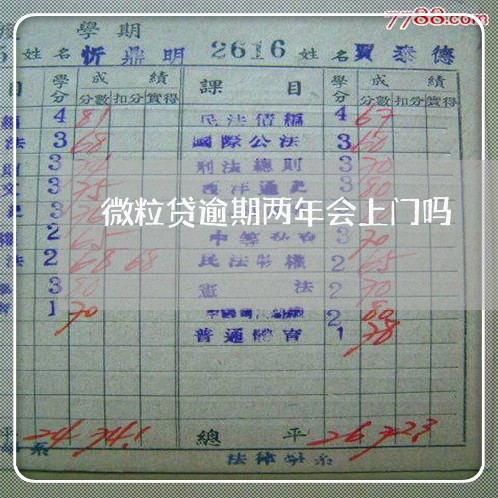 7788.com
學期
姓名 忻鼎明 2616 姓名 賈泰德
目 學分 成績 課目 學分 成績
分數 扣分 實得 分數 扣分 實得
4 81 民法債編 4 67
法 3 68 國際公法 3 60
3 刑法總則 3 70
3 75 西洋通史 3 80
3
微粒贷逾期两年会上门吗
2 65 3 70
法 2 68 68 民法物權 2 65
3 80 憲法 2 70
1 70 2 80
普通體育 1 78
平 24 74.1 總平 26 72.3
系 法律學系